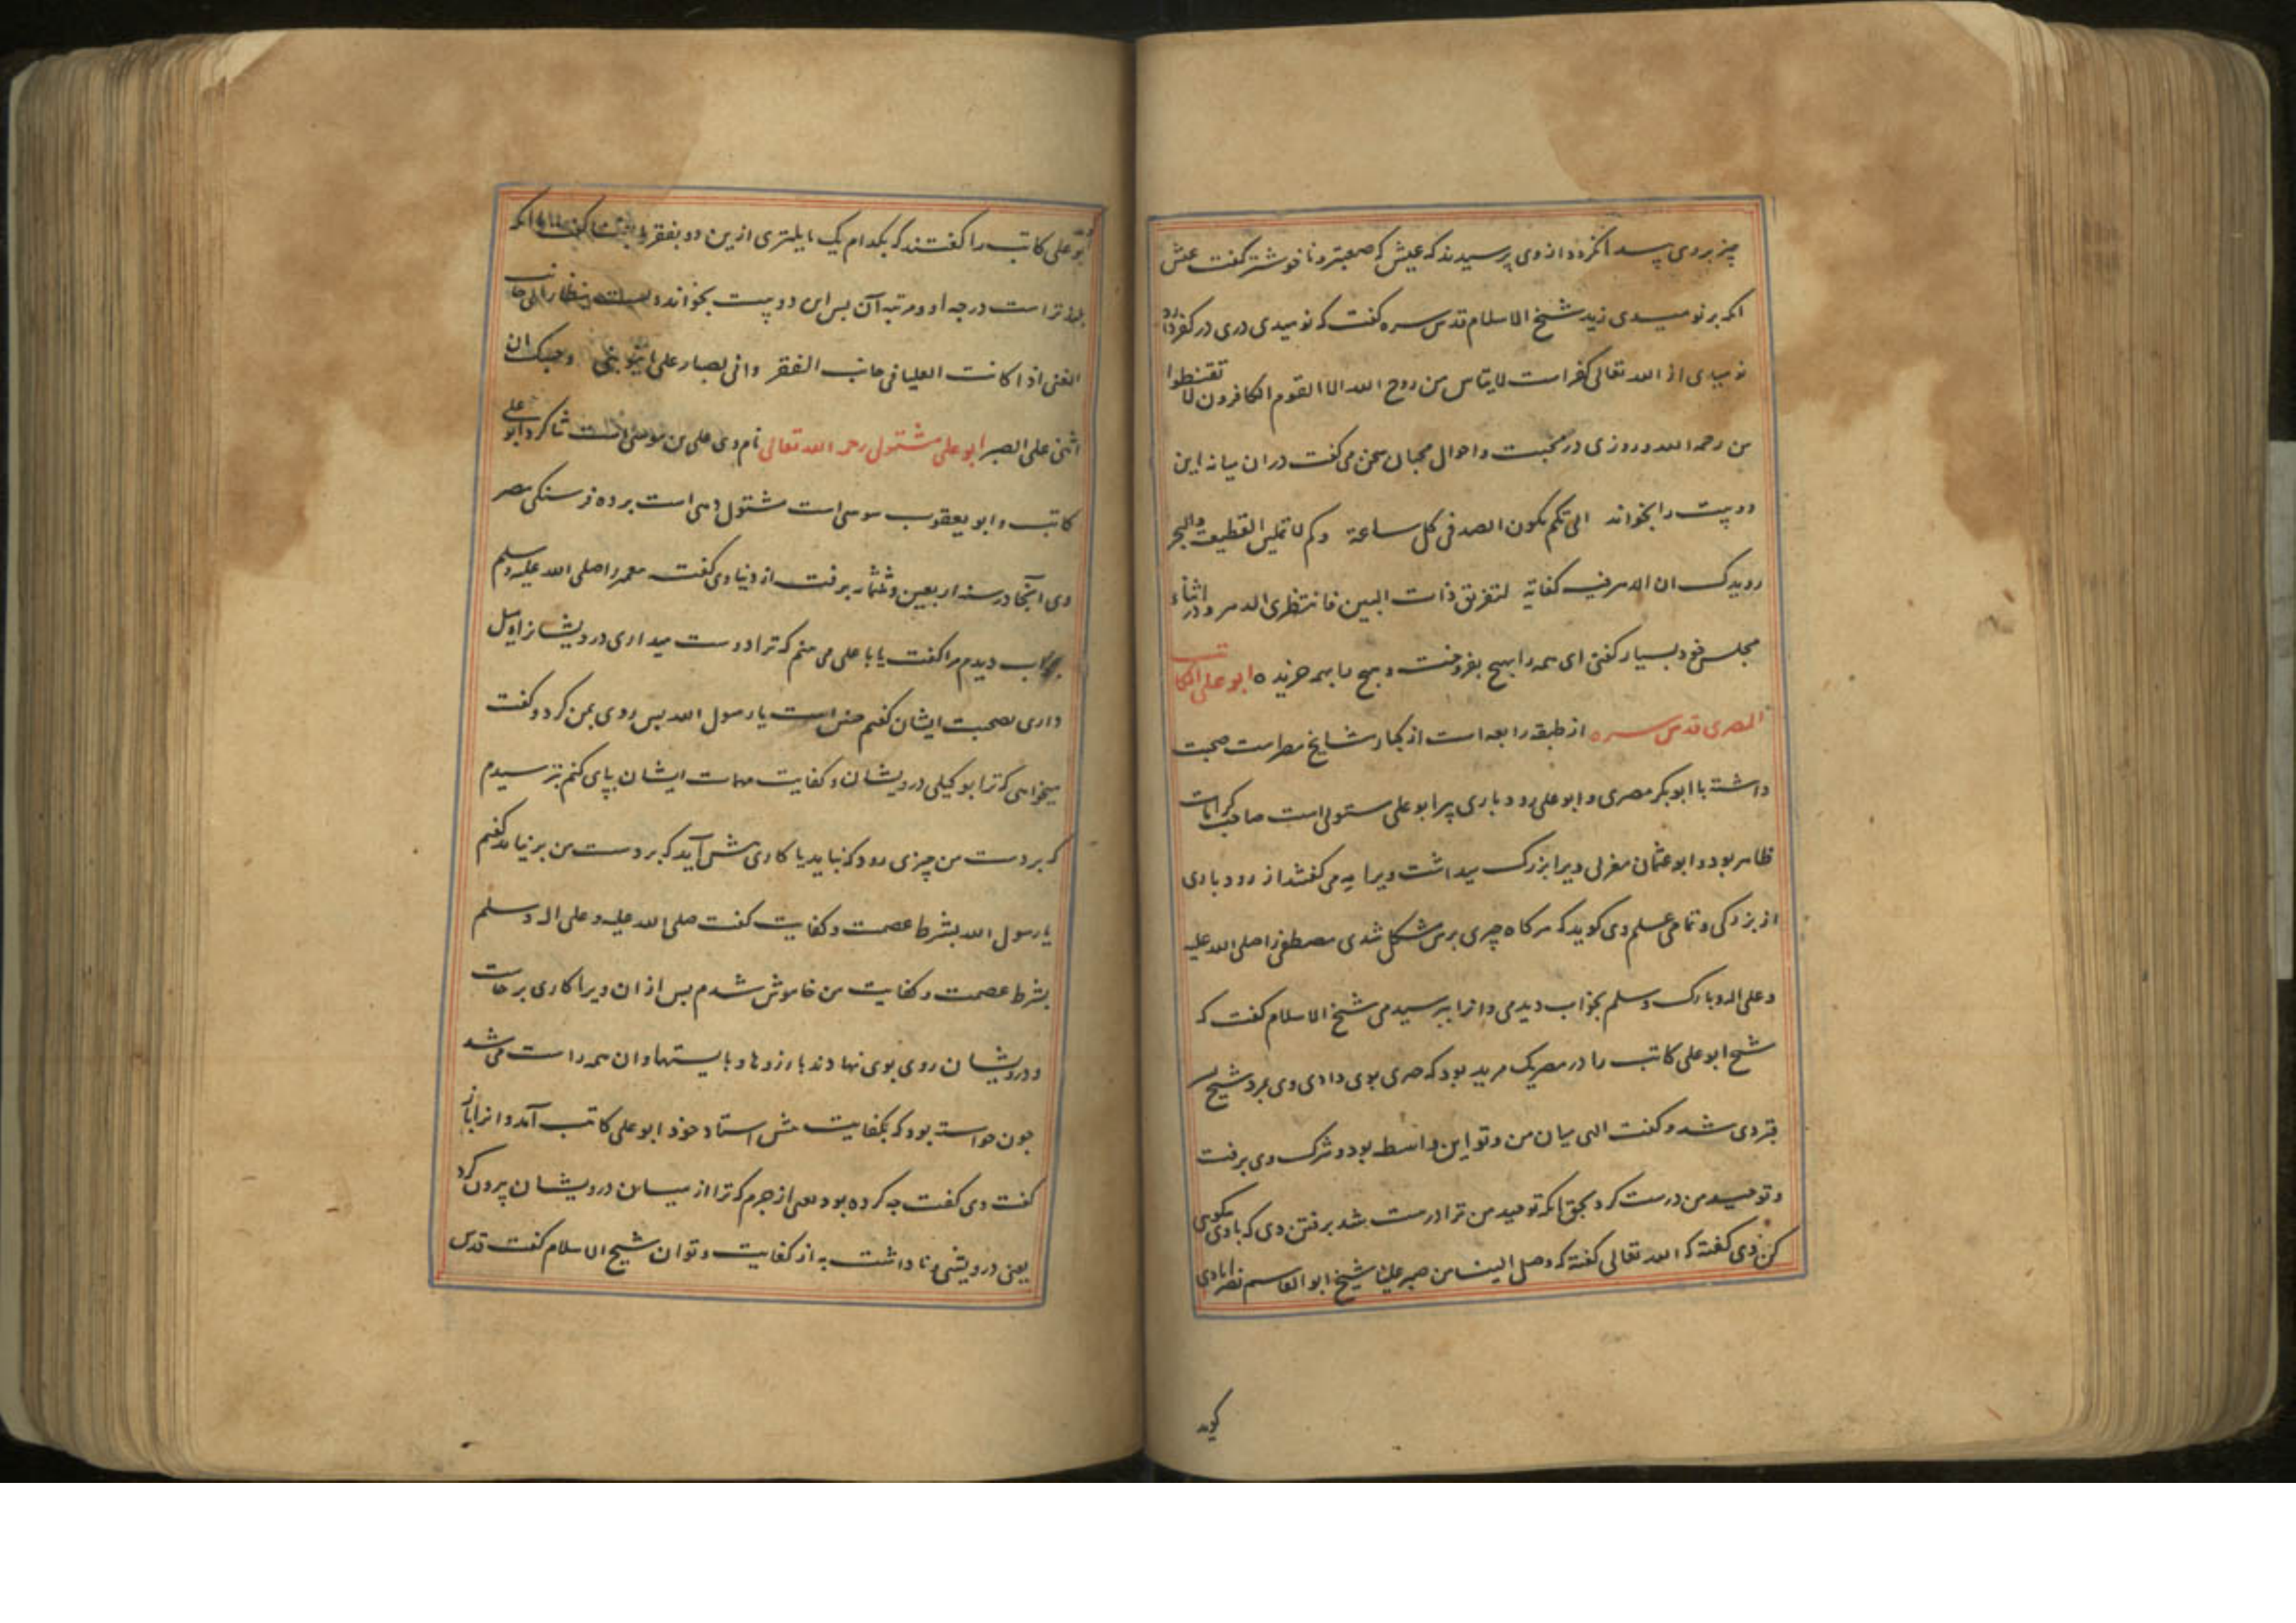 چیز بروی پیدا نکرد و از وی پرسیدند که عیش که صعبتر و ناخوشتر گفت عیش
انکه بر نومیدی زید شیخ الاسلام قدس سره گفت که نومیدی دری در کفر دارد
نومیدی از الله تعالی کفر است لا یتاس من روح الله الا القوم الکافرون لا تقنطوا
من رحمه الله و روزی در محبت و احوال محبان سخن می کفت در ان میانه این
دو بیت را بخواند الی کم یکون الصد فی کل ساعة وکم لا تملین القطیعة والهجر
رویدک ان الدهر فیه کفایة لتفریق ذات البین فانتظری الدهر و در اثناء
مجلس خود بسیار کفتی ای همه را بهیچ بفروخت و هیچ با بهمه خریده ابو علی الکاتب
المصری قدس سره از طبقه رابعه است از کبار مشایخ مصر است صحبت
داشته با ابو بکر مصری و ابو علی رودباری پیر ابو علی مشتولی است صاحب کرامات
ظاهر بود و ابو عثمان مغربی ویرا بزرک میداشت ویرا به می کفتند از رودباری
از بزرکی و تمامی علم وی کوید که هر کاه چیزی بر من مشکل شدی مصطفی را صلی الله علیه
و علی اله و بارک وسلم بخواب دیدمی و انرا بپرسیدمی شیخ الاسلام کفت که
شیخ ابو علی کاتب را در مصر یک مرید بود که چیزی بوی دادی وی بمرد شیخ
بقبر وی شد و کفت الهی میان من و تو این واسطه بود و شرک وی برفت
و توحید من درست کرد بحق انکه توحید من ترا درست شد برفتن وی که با وی نیکویی
کن وی کفته که الله تعالی کفته که وصل الینا من صبر علینا شیخ ابو القاسم نصرابادی
کوید
ابو علی کاتب را کفتند که بکدام یک مایلتری ازین دو بفقر
بلندتر است درجه او و مرتبه آن بس این دو بیت بخواند ولست بنظار الی جانب
الغنی اذا کانت العلیا فی جانب الفقر وانی لصبار علی ما ینوبنی وحسبک ان
اثنی علی الصبر ابو علی مشتولی رحمه الله تعالی نام وی علی بن موسی است شاکرد ابو علی
کاتب و ابو یعقوب سوسی است مشتول دهی است بر ده فرسنکی مصر
وی آنجا در سنه اربعین و ثلثمایه برفت از دنیا وی کفت پیغمبر را صلی الله علیه وسلم
بخواب دیدم مرا کفت یا با علی می بینم که ترا دوست میداری درویشانرا و میل
داری بصحبت ایشان کفتم چنین است یا رسول الله بس روی بمن کرد و کفت
میخواهی که ترا بوکیلی درویشان و کفایت مهمات ایشان بپای کنم بترسیدم
که بر دست من چیزی رود که نباید یا کاری پیش آید که بر دست من بر نیاید کفتم
یا رسول الله بشرط عصمت و کفایت کفت صلی الله علیه و علی اله وسلم
بشرط عصمت و کفایت من خاموش شدم بس از ان ویرا کاری برخاست
و درویشان روی بوی نهادند بارزوها و بایستها و ان همه راست می شد
چون خواسته بود که بکفایت پیش استاد خود ابو علی کاتب آمد و انرا باز
کفت وی کفت چه کرده بودهٔ از جرم که ترا از میان درویشان بیرون کرد
یعنی درویشی و ناداشت به از کفایت و توان شیخ الاسلام کفت قدس